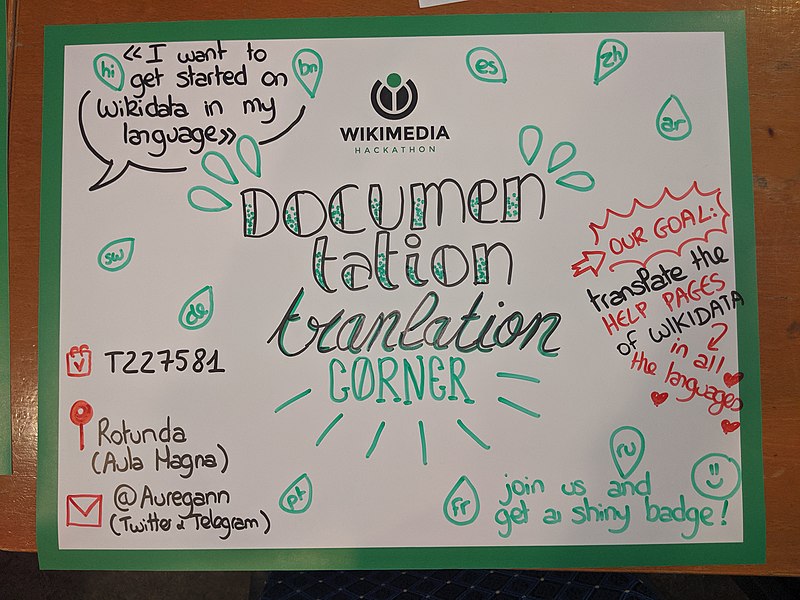 hi
« I want to
get started on
wikidata in my
language»
bn
es
zh
ar
WIKIMEDIA
HACKATHON
DOCUMEN
tation
tranlation
CORNER
sw
de
OUR GOAL:
translate the
HELP PAGES
of WIKIDATA
in all
the languages
T227581
Rotunda
(Aula Magna)
@Auregann
(Twitter & Telegram)
pt
fr
ru
join us and
get a shiny badge!